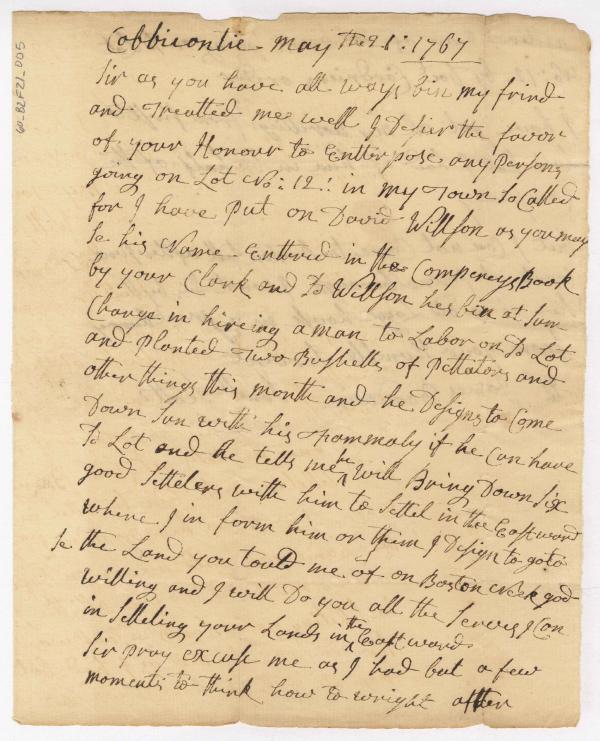 60-B2F21-D05
Cobbicontie May the 21: 1767
Sir as you have all ways bin my frind
and Treatted me well I Desier the favor
of your Honour to Entterpose any Persons
going on Lot No: 12: in my Town So Called
for I have Put on David Willson as you may
Se his Name Enttred in the Compeneys Book
by your Clark and Sd Willson hes bin at Sum
Charge in hireing a man to Labor on Sd Lot
and Planted Two Bushells of Pettators and
other things this month and he Designs to Come
Down Sun with his Fammaly if he Can have
Sd Lot and he tells me he will Bring Down Six
good Settelers with him to Settel in the Eastward
where I in form him or them I Design to go to
Se the Land you tould me of on Boston Neck god
willing and I will Do you all the Serves I Can
in Setteling your Lands in the Eastward
Sir pray excuse me as I had but a few
moments to think how to wright after